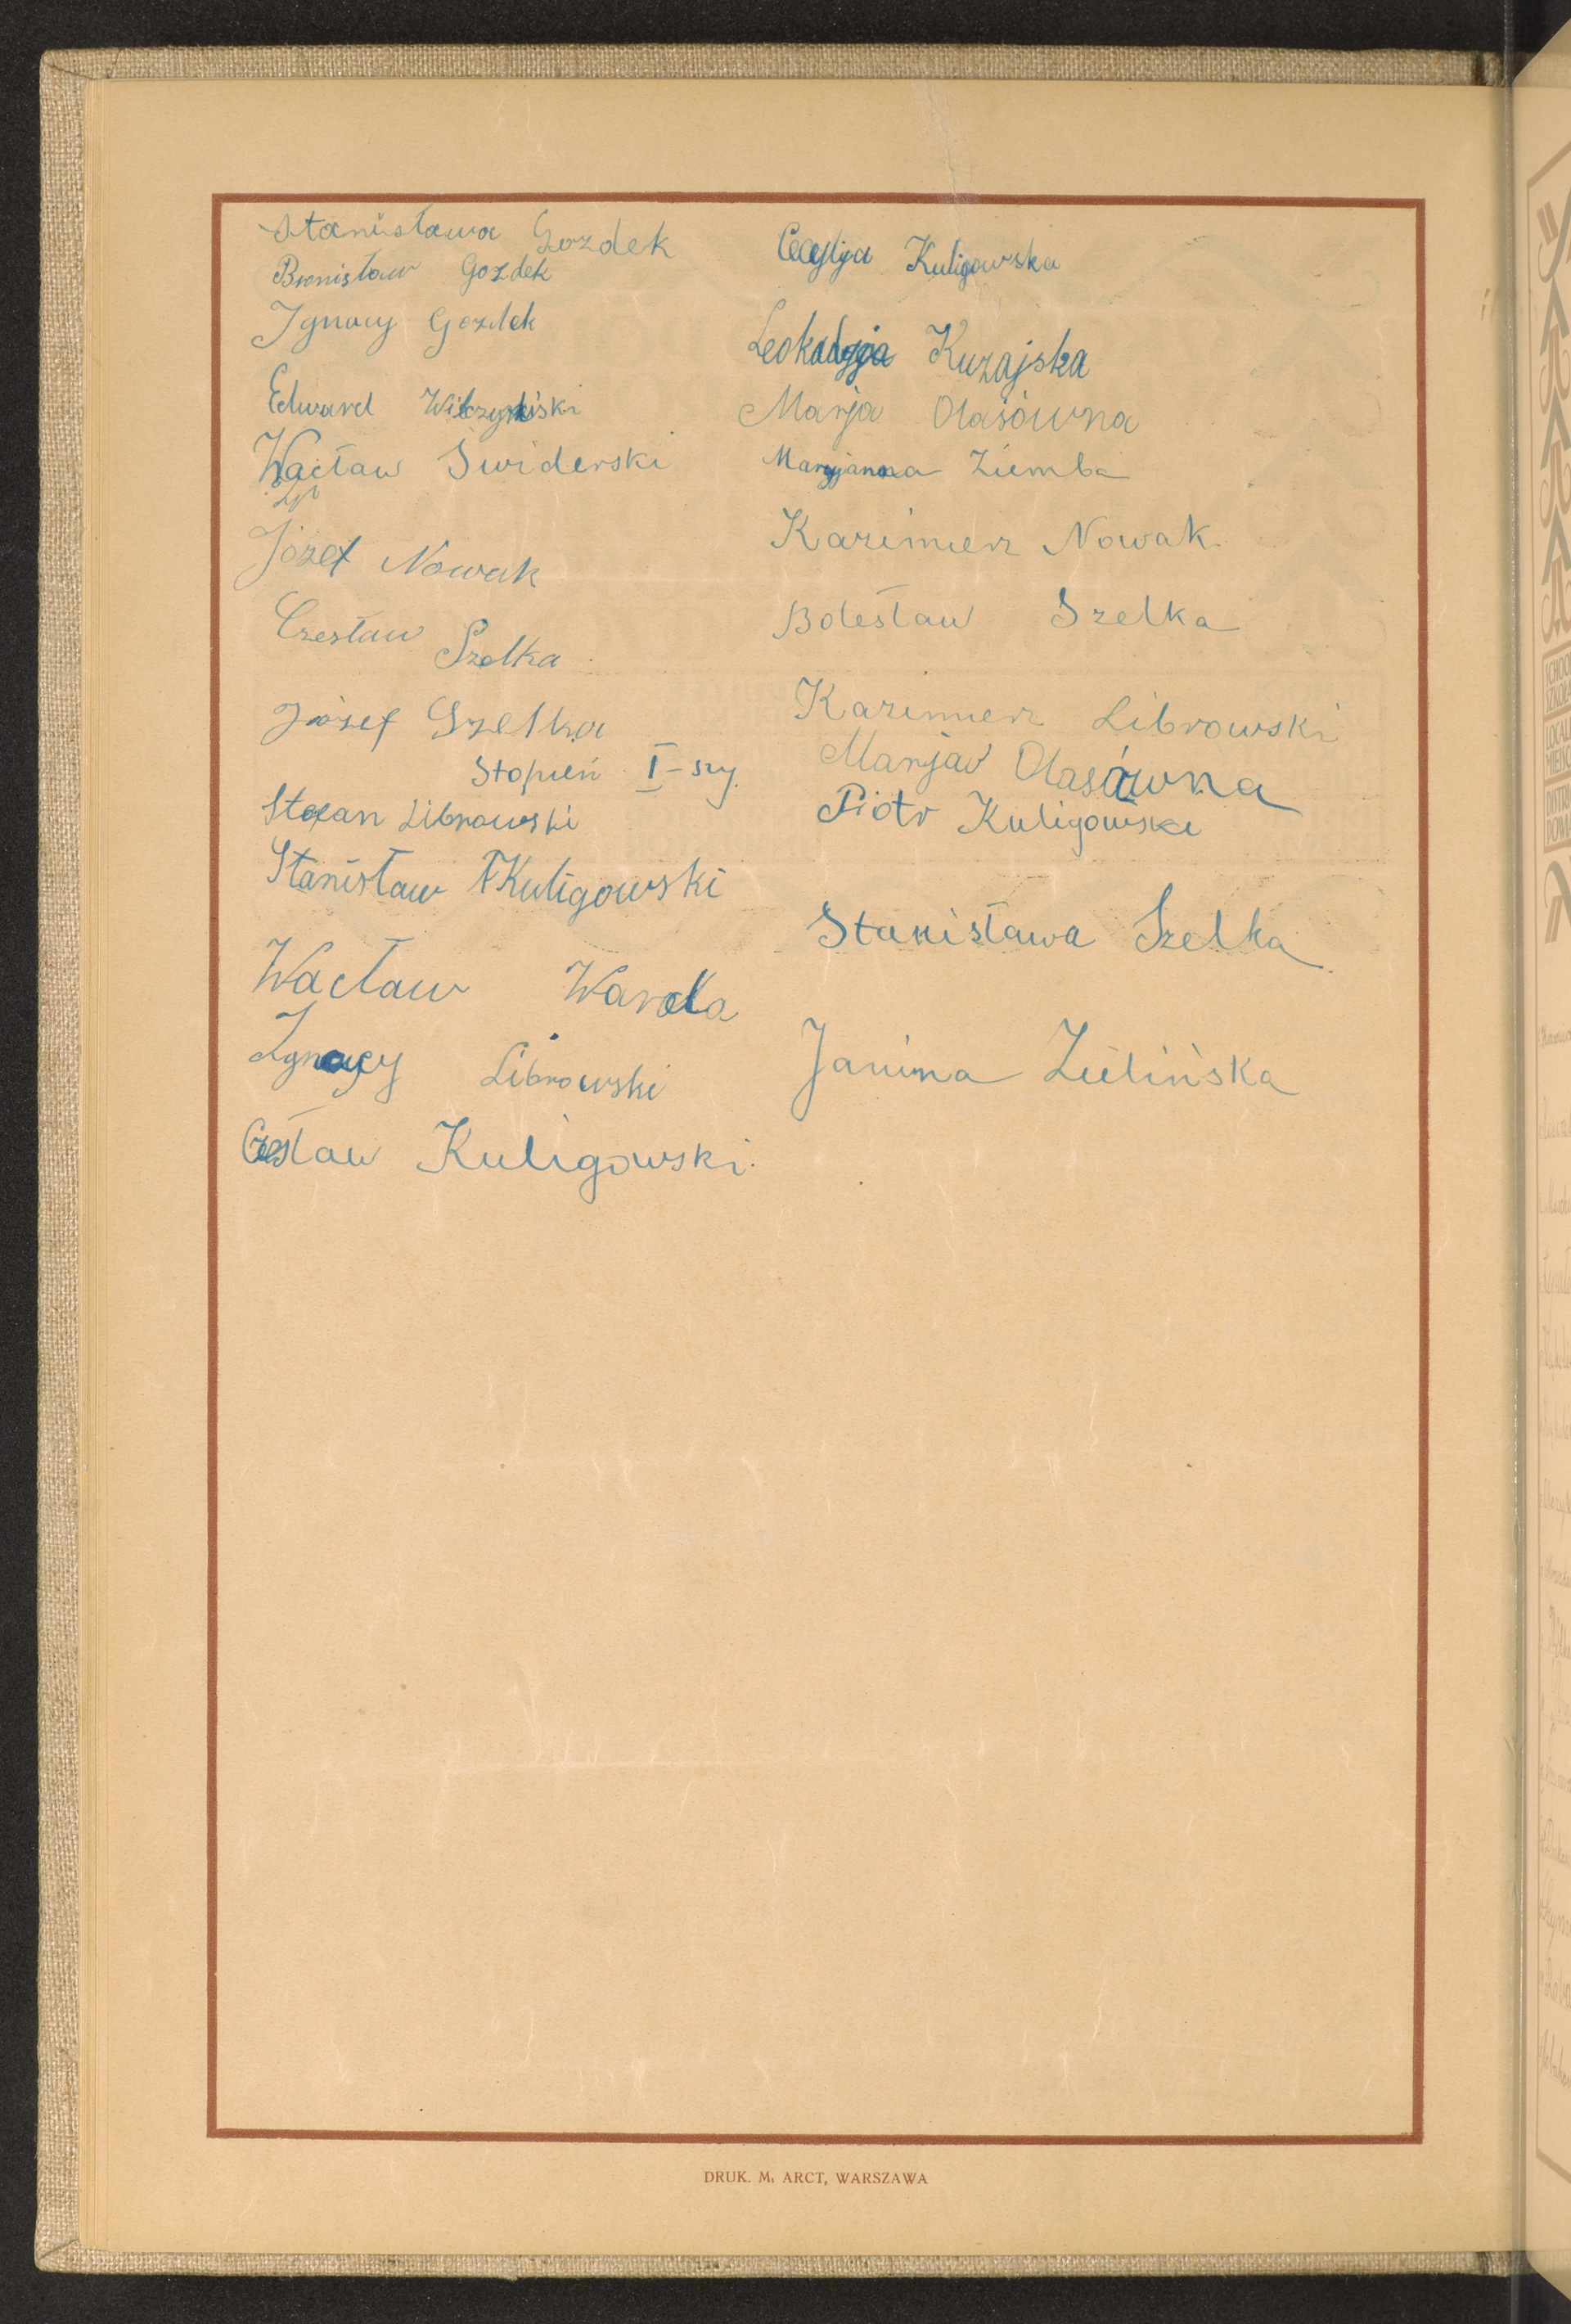 Stanisława Gozdek
Bronisław Gozdek
Ignacy Gozdek
Edward Wilczyński
Wacław Świderski
Józef Nowak
Czesław Szelka
Józef Szelka
Stopień I-szy.
Stefan Librowski
Stanisław Kuligowski
Wacław Warda
Ignacy Librowski
Czesław Kuligowski.
Cecylja Kuligowska
Leokadyja Kuzajska
Marja Olasówna
Maryjanna Ziemba
Kazimierz Nowak.
Bolesław Szelka
Kazimierz Librowski
Marja Olasówna
Piotr Kuligowski
Stanisława Szelka
Janina Zielińska
DRUK. M. ARCT, WARSZAWA